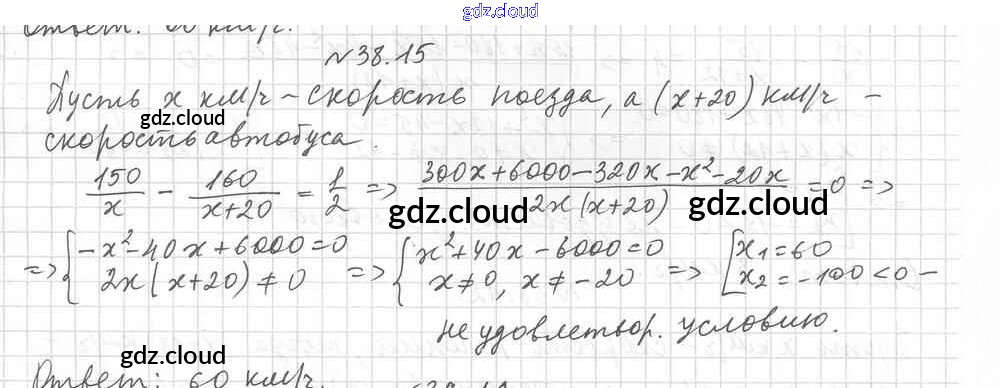 gdz.cloud
gdz.cloud
Ответ: 60 км/ч.
№38.15
Пусть x км/ч – скорость поезда, а (x+20) км/ч –
скорость автобуса.
gdz.cloud
150/x - 160/(x+20) = 1/2 => (300x+6000-320x-x²-20x)/(2x(x+20)) = 0 =>
gdz.cloud gdz.cloud
=> { -x²-40x+6000=0 => { x²+40x-6000=0 => [ x₁=60
2x(x+20)≠0 x≠0, x≠-20 x₂=-100<0 –
не удовлетвор. условию.
gdz.cloud gdz.cloud
Ответ: 60 км/ч.